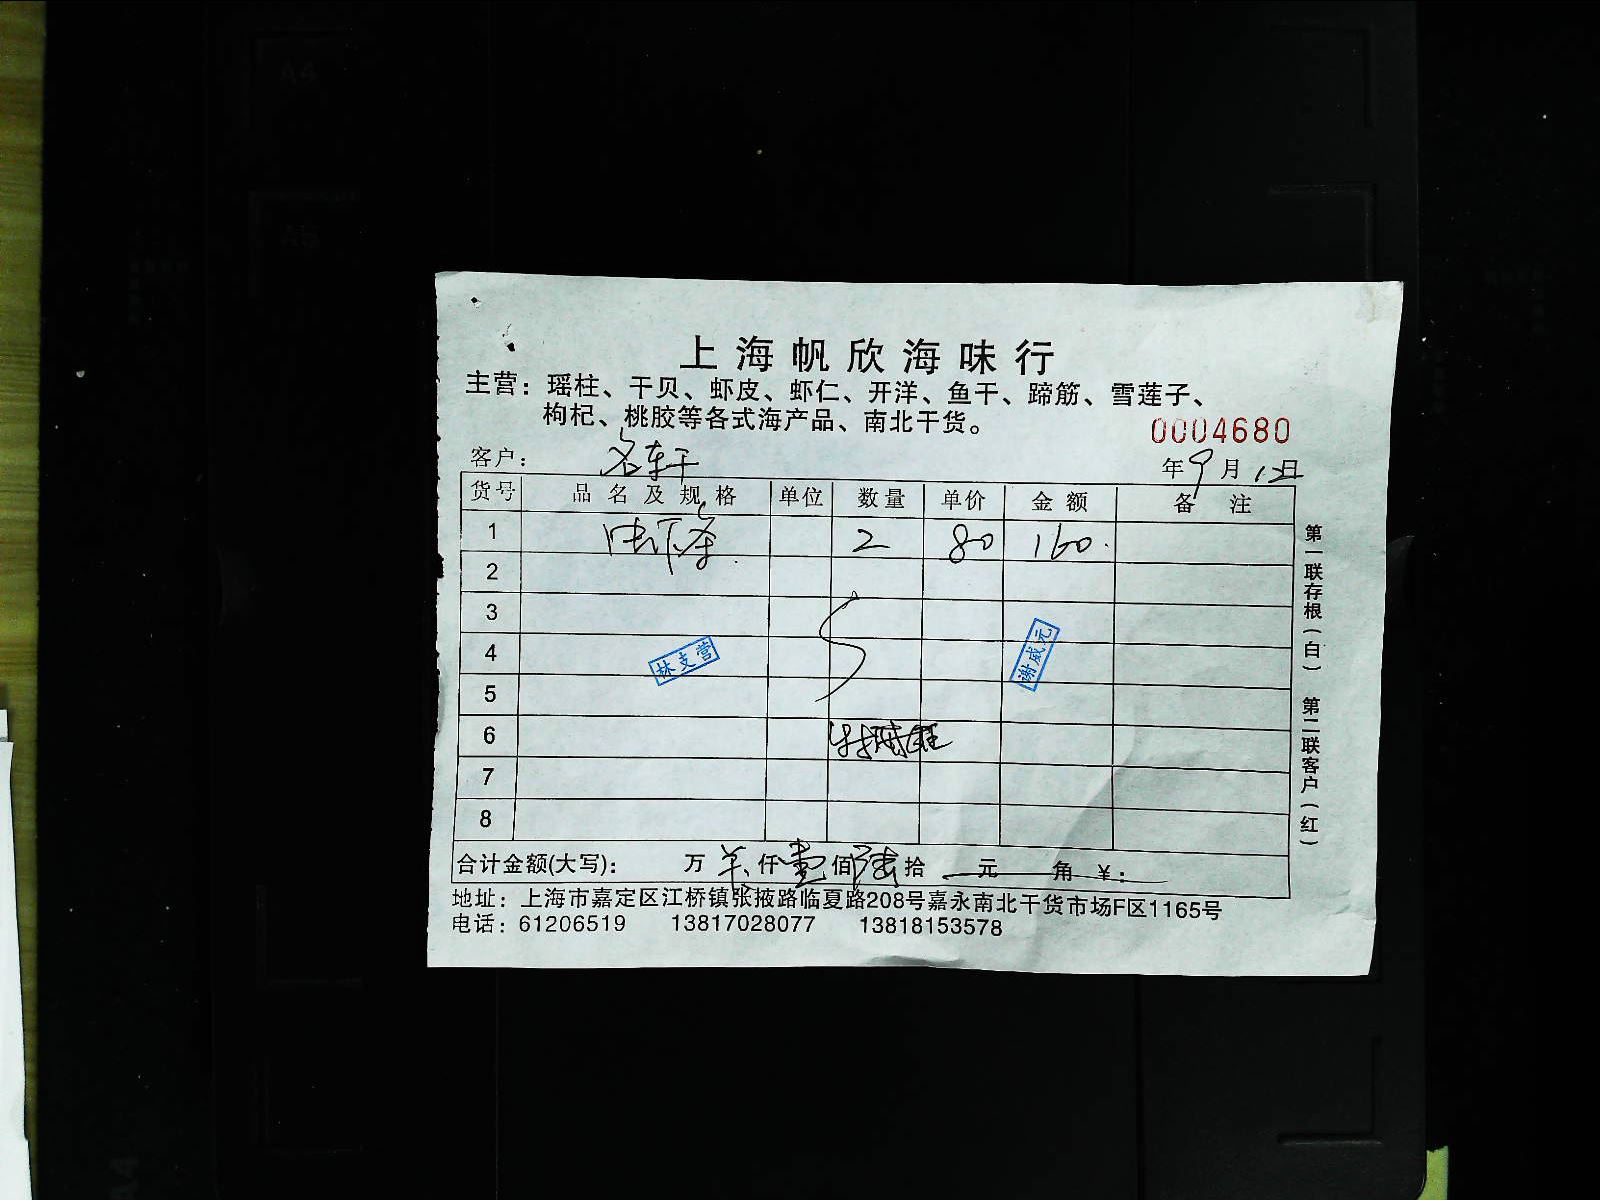 上海帆欣海味行
主营：瑶柱、干贝、虾皮、虾仁、开洋、鱼干、蹄筋、雪莲子、
枸杞、桃胶等各式海产品、南北干货。
0004680
客户： 名轩 年9月12日
货号 品名及规格 单位 数量 单价 金额 备注
1 2 80 160.
2
3
4
5
6
7
8
林支营
谢威元
合计金额(大写)： 万 仟壹佰陆拾 元 角 ¥：
地址：上海市嘉定区江桥镇张掖路临夏路208号嘉永南北干货市场F区1165号
电话：61206519 13817028077 13818153578
第一联存根（白） 第二联客户（红）